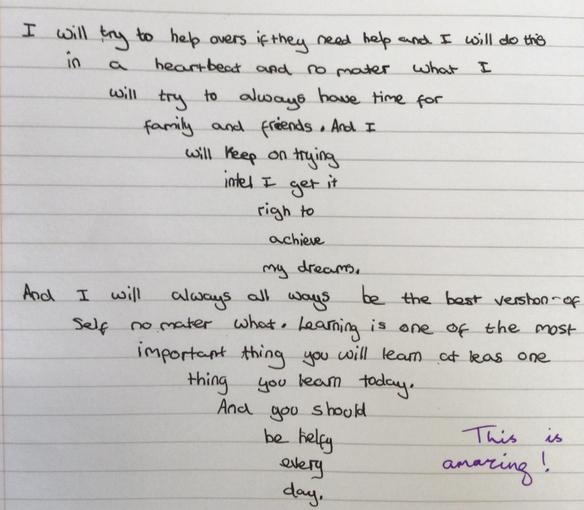 I will try to help overs if they need help and I will do this
in a heartbeat and no mater what I
will try to always have time for
family and friends. And I
will keep on trying
intel I get it
righ to
achieve
my dreams.
And I will always all ways be the best vershon-of
self no mater what. Learning is one of the most
important thing you will learn at leas one
thing you learn today.
And you should
be helfy
every
day.
This is
amazing!